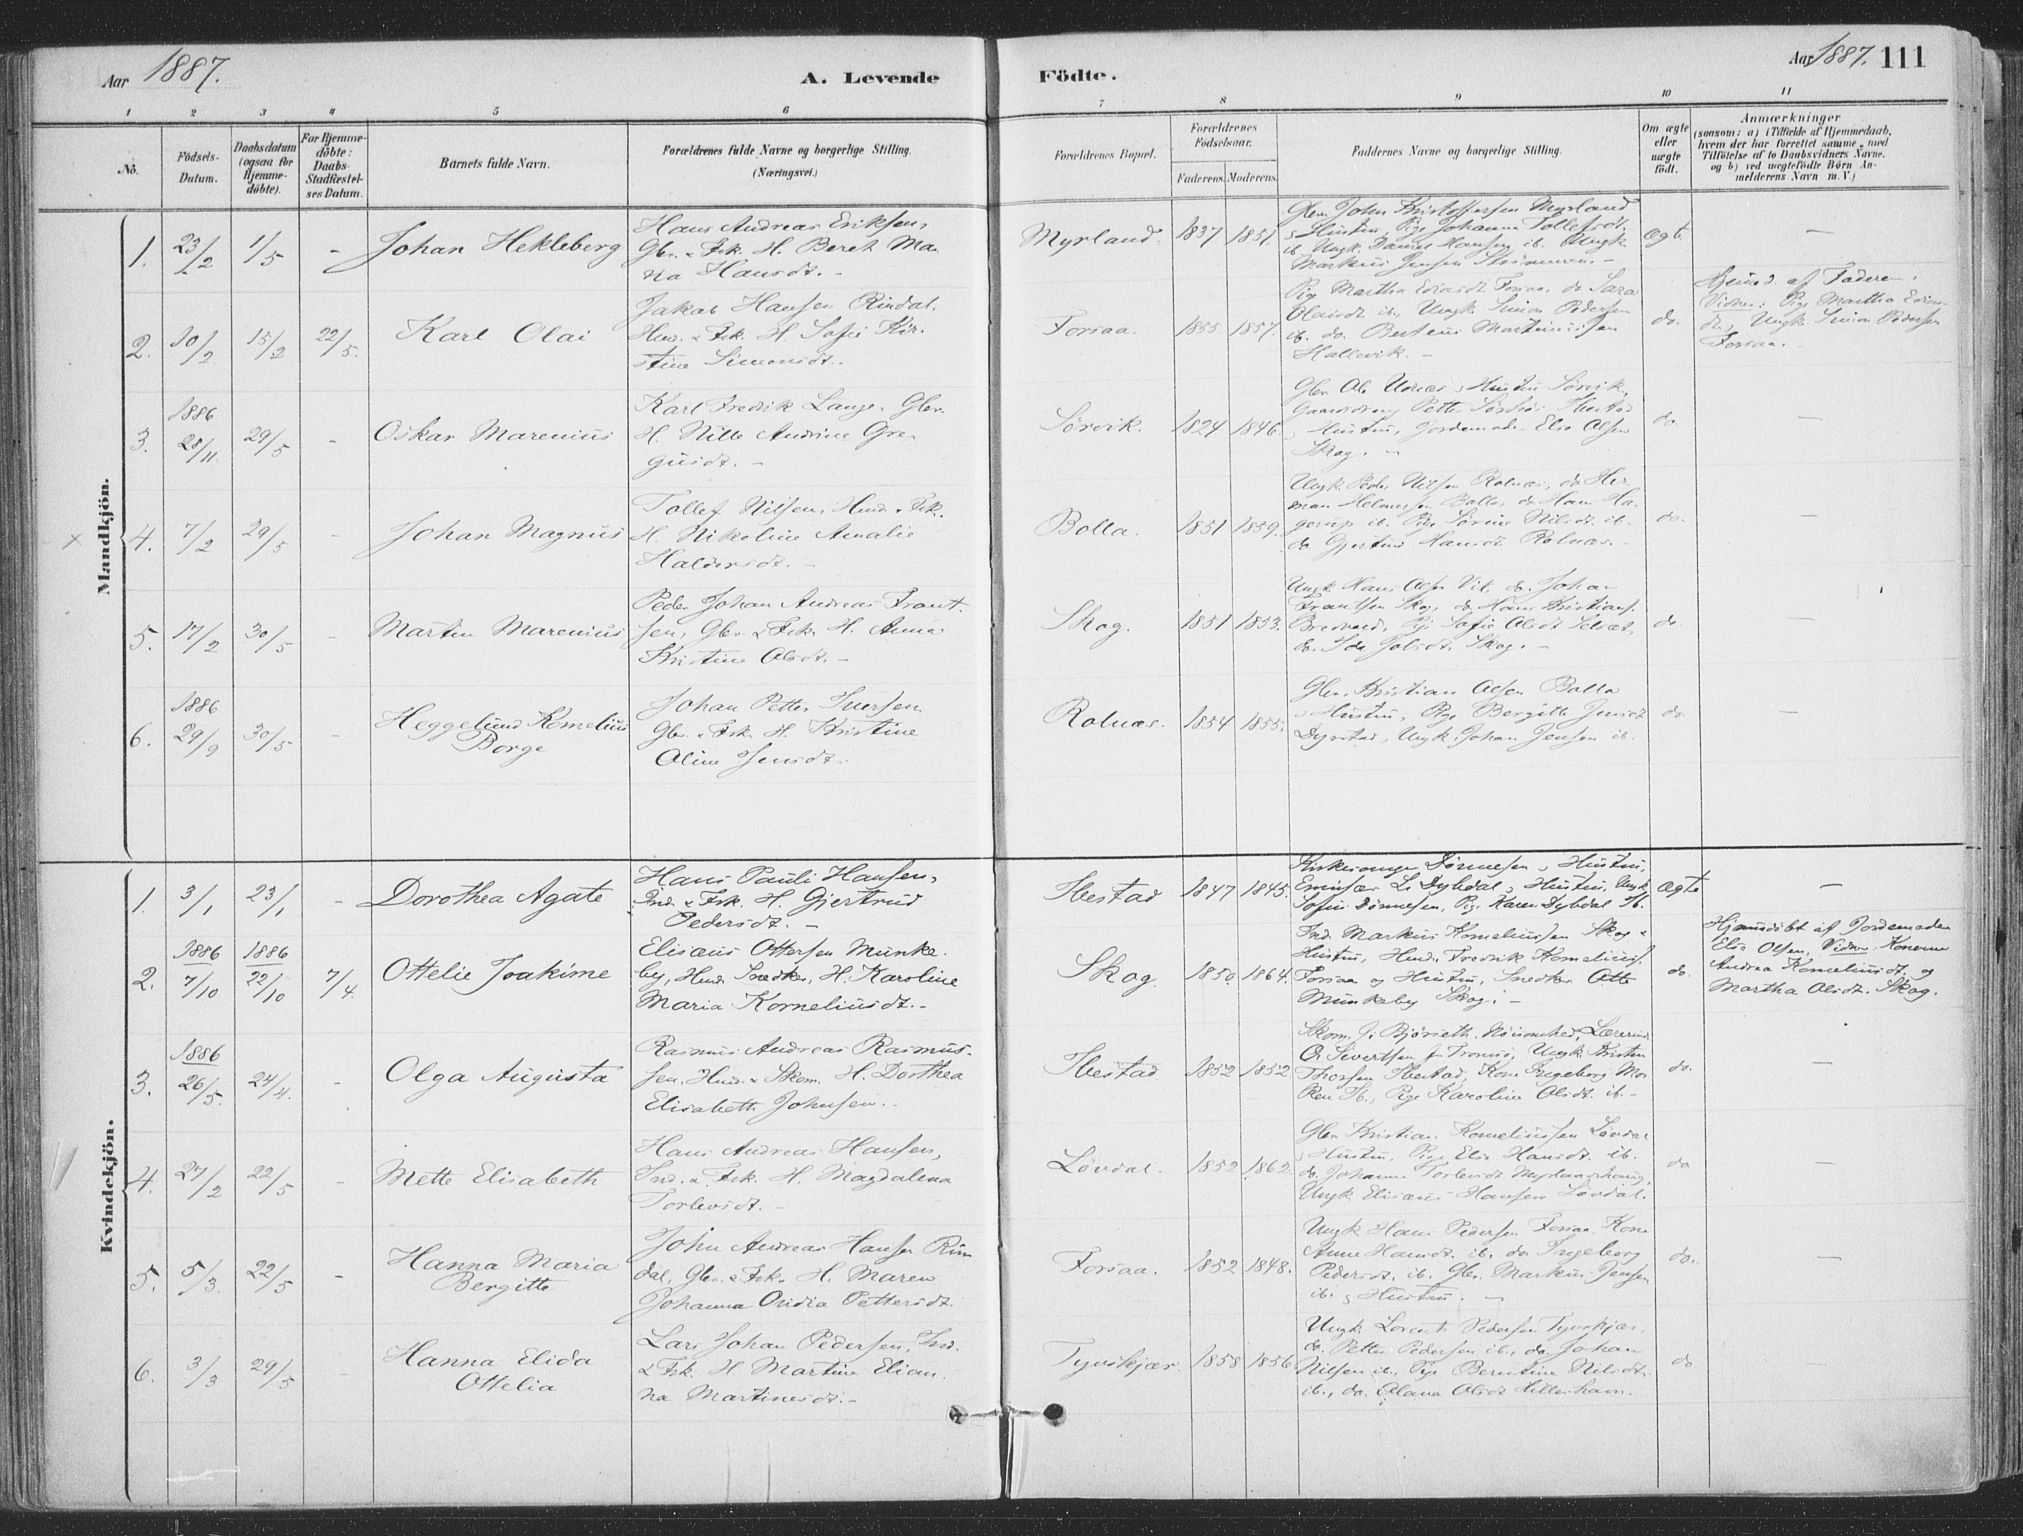 Aar 1887.
A. Levende
Födte.
Aar 1887. 111
1 2 3 4 5 6 7 8 9 10 11
No.
Födsels-Datum.
Daabsdatum (ogsaa for Hjemme-döbte).
For Hjemme-döbte: Daabs-Stadfæstel-ses Datum.
Barnets fulde Navn.
Forældrenes fulde Navne og borgerlige Stilling.
(Næringsvei.)
Forældrenes Bopæl.
Forældrenes Födselsaar.
Faderens. Moderens.
Faddernes Navne og borgerlige Stilling.
Om ægte eller uægte födt.
Anmærkninger
(saasom: a) i Tilfælde af Hjemmedaab,
hvem der har forrettet samme, med
Tilföielse af to Daabsvidners Navne.
og b) ved uægtefödte Börn An-
melderens Navn m. V.)
Mandkjön.
1. 23/2 1/5 - Johan Hekleberg
Hans Andreas Eriksen,
Gbr. & Fsk. H. Beret Ma-
na Hansdt. -
Myrland. 1837 1851.
Gbr. John Kristoffersen Myrland
& Hustru, Pige Johanna Tollefsdt,
ib. Ungk. Daniel Hansen ib. Ungk.
Markus Jensen
Ægte
-
2. 10/2 15/2 22/5. Karl Olai
Jakob Hansen Rindal,
Hmd. & Fsk. H. Sofie Kir-
stine Simonsdt.
Forsaa. 1855. 1857.
Pige Martha Forsaa, do Sara
Olaisdt ib, Ungk. Simon Pedersen
ib. do. Berteus Martinussen
Hallevik. -
do.
Hjemd. af Faderen.
Vidner: Pige Martha
dt, Ungk. Simon Pedersen
Forsaa. -
3. 1886 28/11. 29/5 - Oskar Marenius
Karl Fredrik Lange, Gbr.
H. Nille Andrine Gre-
gusdt. -
Sørvik. 1824 1846.
Gbr. Ole & Hustru Sørvik,
Petter
& Hustru, Jordemoder Else Olsen
Skog. -
do.
-
4. 7/2 29/5 - Johan Magnus
Tollef Nilsen, Hmd. & Fsk.
H. Nikoline Amalie
Haldorsdt. -
Bolla. 1851 1859.
Ungk. Peder Nilsen Rolnæs, do Her-
man Bolla, do Hans Ha-
gerup ib. Pige Sørine Nilsdt ib.
do Gjertine Hansdt Rolnæs. -
do.
-
5. 17/2 30/5 - Martin Marenius
Peder Johan Andreas Frant-
sen, Gbr. & Fsk. H. Anna
Kristine Olsdt. -
Skog. 1851 1853.
Ungk. Hans Olsen Vik, do. Johan
Frantsen Skog, do. Hans Kristians.
Bredvand, Pg. Sofie Olsdt
do. Ida Skog. -
do.
6. 1886 29/9 30/5 - Heggelund Kornelius
Borge
Johan Petter Iversen
Gbr. & Fsk. H. Kristine
Oline Jensdt.
Rolnæs. 1854 1855.
Gbr. Kristian Olsen Bolla
& Hustru, Pige Bergitte Jensdt
Dyrstad, Ungk. Johan Jensen ib.
do
-
Kvindekjön.
1. 3/1 23/1 - Dorothea Agate
Hans Pauli Hansen,
Ind. & Fsk. H. Gjertrud
Pedersdt. -
Ibestad 1847 1845.
Kirkesanger Dønnesen & Hustru,
L. Dybdal & Hustru, Ungk.
Sofus Dønnesen, Pige Karen Dybdal Ib.
Ægte
-
2. 1886 7/10 1886 22/10 7/4. Ottelie Joakime
Elisæus Ottersen Munke-
by, Hmd. Snedker, H. Karoline
Maria Korneliusdt. -
Skog. 1850. 1864.
Ind. Markus Korneliussen Skog &
Hustru, Hmd. Fredrik Kornelius.
Forsaa og Hustru, Snedker Otte
Munkeby Skog. -
do.
Hjemmedöbt af Jordemoder
Else Olsen. Vidner Konerne
Andrea Korneliusdt. og
Martha Olsdt. Skog.
3. 1886 26/5. 24/4. - Olga Augusta
Rasmus Andreas Rasmus-
sen, Hmd. & Skom. H. Dorthea
Elisabeth Johnsen. -
Ibestad 1852 1852
Skom. J. Bjørseth, Lærerinde
O. Sivertsen fra Tromsø, Ungk. Kristen
Thorsen Ibestad, Kone Ingeborg Mor-
ken Ib., Pige Karoline Olsdt. ib. -
do.
-
4. 27/2 22/5 - Mette Elisabeth
Hans Andreas Hansen,
Ind. & Fsk. H. Magdalena
Torlevsdt. -
Løvdal. 1852 1862.
Gbr. Kristian Korneliussen Løvdal
& Hustru, Pige Else Hansdt. ib.
do. Johanna Torlevsdt
Ungk Elisæus Hansen Løvdal.
do
-
5. 5/3. 22/5 - Hanna Maria
Bergitte
John Andreas Hansen Rin-
dal, Gbr. & Fsk. H. Maren
Johanna Ovidia Pettersdt.
Forsaa. 1852 1848.
Ungk Hans Pedersen Forsaa Kone
Anne Hansdt. ib. do Ingeborg
Pedersdt. ib. Gbr. Markus Jensen
ib. & Hustru. -
do.
-
6. 3/3 29/5 - Hanna Elida
Ottelia
Lars Johan Pedersen, Ind.
& Fsk. H Martine Elian-
na Martinesdt. -
Tyvskjær 1858 1856
Ungk. Lorents Pedersen Tyvskjær.
do. Petter Pedersen ib., do. Johan
Nilsen ib., Pige Berntine Nilsdt.
ib., do. Olava Olsdt
do